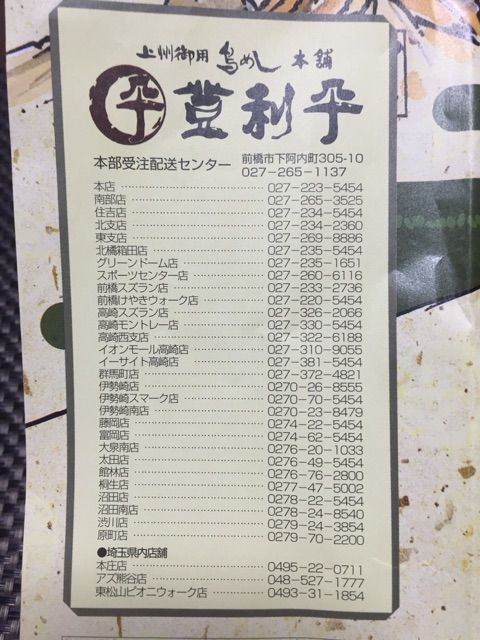 上州御用 鳥めし 本舗
平 登利平
本部受注配送センター 前橋市下阿内町305-10
027-265-1137
本店 027-223-5454
南部店 027-265-3525
住吉店 027-234-5454
北支店 027-234-2360
東支店 027-269-8886
北橘箱田店 027-235-5454
グリーンドーム店 027-235-1651
スポーツセンター店 027-260-6116
前橋スズラン店 027-233-2736
前橋けやきウォーク店 027-220-5454
高崎スズラン店 027-326-2066
高崎モントレー店 027-330-5454
高崎西支店 027-322-6188
イオンモール高崎店 027-310-9055
イーサイト高崎店 027-381-5454
群馬町店 027-372-4821
伊勢崎店 0270-26-8555
伊勢崎スマーク店 0270-70-5454
伊勢崎南店 0270-23-8479
藤岡店 0274-22-5454
富岡店 0274-62-5454
大泉南店 0276-20-1033
太田店 0276-49-5454
館林店 0276-76-2800
桐生店 0277-47-5002
沼田店 0278-22-5454
沼田南店 0278-24-8540
渋川店 0279-24-3854
原町店 0279-70-2200
●埼玉県内店舗
本庄店 0495-22-0711
アズ熊谷店 048-527-1777
東松山ピオニウォーク店 0493-31-1854